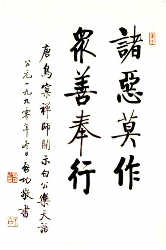 諸惡莫作
眾善奉行
唐鳥窠禪師開示白公樂天語
公元一九九〇年 日啟功敬書